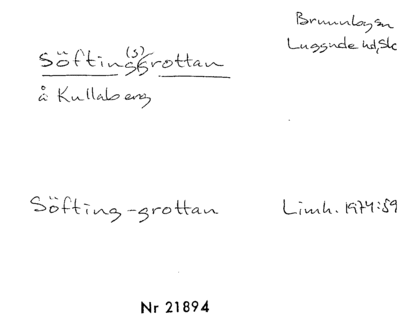 Brunnbyskn
Luggude hd, Sk
Söfting(s)grottan
å Kullaberg
Söfting-grottan
Limh. 1974:59
Nr 21894